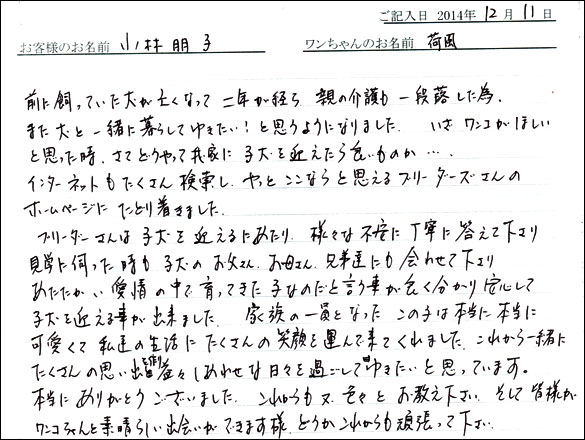 ご記入日 2014年 12月 11日
お客様のお名前 小林朋子 ワンちゃんのお名前 荷風
前に飼っていた犬が亡くなって 二年が経ち 親の介護も一段落した為、
また犬と一緒に暮らしてゆきたい！と思うようになりました。 いざワンコがほしい
と思った時、さてどうやって我家に子犬を迎えたら良いものか…．
インターネットもたくさん検索し、やっとここならと思えるブリーダーズさんの
ホームページにたどり着きました。
ブリーダーさんは子犬を迎えるにあたり、様々な不安に丁寧に答えて下さり
見学に伺った時も子犬のお父さん、お母さん、兄弟達にも会わせて下さり
あたたかい愛情の中で育ってきた子なのだと言う事が良く分かり安心して
子犬を迎える事が出来ました。 家族の一員となったこの子は本当に本当に
可愛くて私達の生活にたくさんの笑顔を運んで来てくれました。これから一緒に
たくさんの思い出を創り益々しあわせな日々を過ごしてゆきたいと思っています。
本当にありがとうございました。これからも又、色々とお教え下さい。そして皆様が
ワンコちゃんと素晴らしい出会いができます様、どうかこれからも頑張って下さい。